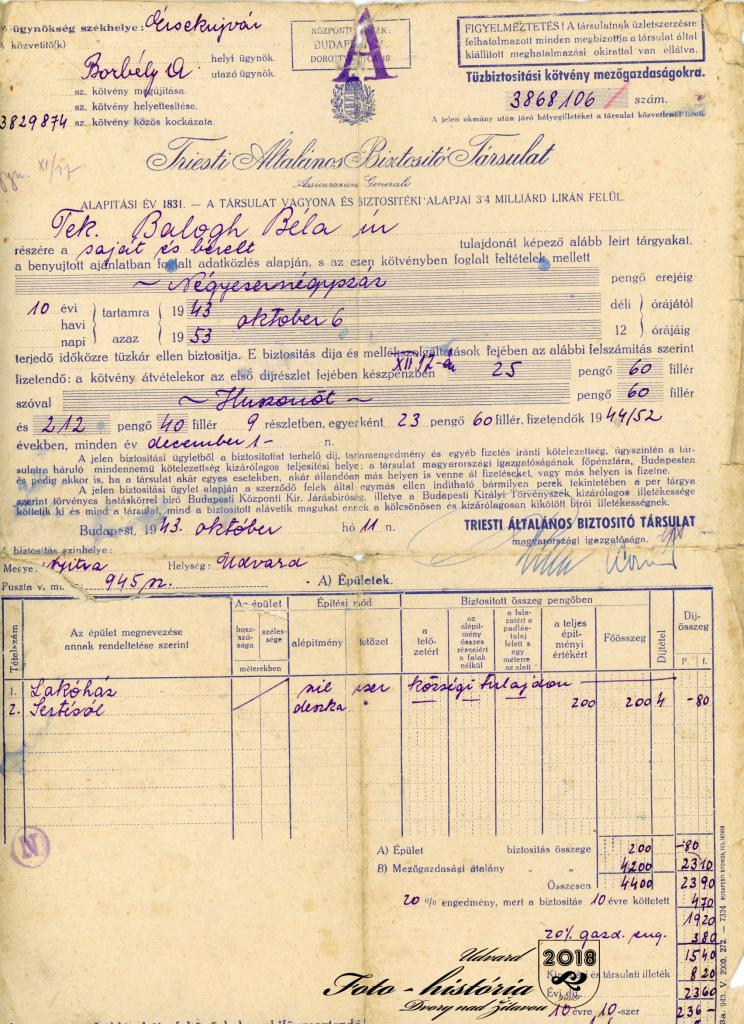 ügynökség székhelye: Érsekujvár
A közvetítő(k)
helyi ügynök.
Borbély A utazó ügynök.
sz. kötvény megújítása.
sz. kötvény helyettesítése.
3829874 sz. kötvény közös kockázata.
KÖZPONTI
BUDAP
DOROTT
A
FIGYELMEZTETÉS! A társulatnak üzletszerzésre
felhatalmazott minden megbizottja a társulat által
kiállított meghatalmazási okirattal van ellátva.
Tüzbiztositási kötvény mezőgazdaságokra.
3868106 szám.
A jelen okmány után járó bélyegilletéket a társulat közvetlenül fizeti
XI/17
Triesti Általános Biztositó Társulat
Assicurazioni Generali
ALAPITÁSI ÉV 1831. — A TÁRSULAT VAGYONA ÉS BIZTOSITÉKI ALAPJAI 3'4 MILLIÁRD LIRÁN FELÜL.
Tek. Balogh Béla úr
részére a saját és bérelt tulajdonát képező alább leirt tárgyakat,
a benyujtott ajánlatban foglalt adatközlés alapján, s az ezen kötvényben foglalt feltételek mellett
~ Négyezernégyszáz pengő erejéig
10 évi havi napi tartamra azaz 1943 1953 október 6 déli 12 órájától órájáig
terjedő időközre tüzkár ellen biztosítja. E biztosítás dija és mellékszolgáltatások fejében az alábbi felszámitás szerint
XII 17-én
fizetendő: a kötvény átvételekor az első díjrészlet fejében készpénzben 25 pengő 60 fillér
szóval ~ Huszonöt ~ pengő 60 fillér
és 212 pengő 40 fillér 9 részletben, egyenként 23 pengő 60 fillér, fizetendők 1944/52
években, minden év december 1- n.
A jelen biztosítási ügyletből a biztositottat terhelő díj, tartamengedmény és egyéb fizetés iránti kötelezettség, úgyszintén a tár-
sulatra háruló mindennemű kötelezettség kizárólagos teljesítési helye: a társulat magyarországi igazgatóságának főpénztára, Budapesten
és pedig akkor is, ha a társulat akár egyes esetekben, akár állandóan más helyen is venne át fizetéseket, vagy más helyen is fizetne.
A jelen biztosítási ügylet alapján a szerződő felek által egymás ellen indítható bármilyen perek tekintetében a per tárgya
szerint törvényes hatáskörrel bíró Budapesti Központi Kir. Járásbíróság, illetve a Budapesti Királyi Törvényszék kizárólagos illetékessége
köttetik ki és mind a társulat, mind a biztositott alávetik magukat ennek a kölcsönösen és kizárólagosan kikötött bírói illetékességnek.
Budapest, 1943. október hó 11 n.
TRIESTI ÁLTALÁNOS BIZTOSITÓ TÁRSULAT
magyarországi igazgatósága.
A biztosítás színhelye:
Megye: Nyitra Helység: Udvard
Puszta v. 945 sz.
A) Épületek.
Tételszám
Az épület megnevezése annak rendeltetése szerint
Az épület hosszúsága szélessége méterekben
Építési mód alépítmény tetőzet
Biztosított összeg pengőben
a tetőzetért
az alépítmény összes részeiért a falak nélkül
a falazatért a padlástalaj felett s egy méterre az alatt
a teljes építményi értékért
Főösszeg
Díjtétel
Díjösszeg P. f.
1. Lakóház községi tulajdon
2. Sertésól deszka " 200 200 4 -80
IV
A) Épület biztosítás összege 200 -80
B) Mezőgazdasági átalány " " 4200 2310
Összesen 4400 2390
20 % engedmény, mert a biztosítás 10 évre köttetett 470
1920
20% gazd. eng. 380
1540
Kincstári és társulati illeték 820
Évi díj 2360
10 évre, 10-szer 236-
Udvard
2018
Foto - história
Dvory nad Žitavou